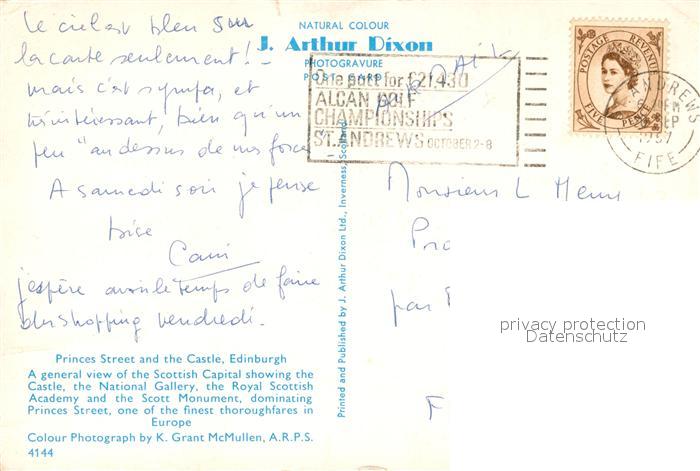 le ciel est bleu sur
la carte seulement! -
mais c'est sympa, et
intéressant, bien qu'un
peu "au dessus de ma force
A samedi soir je pense
bise
j'espère avoir le temps de faire
du shopping vendredi.
Princes Street and the Castle, Edinburgh
A general view of the Scottish Capital showing the
Castle, the National Gallery, the Royal Scottish
Academy and the Scott Monument, dominating
Princes Street, one of the finest thoroughfares in
Europe
Colour Photograph by K. Grant McMullen, A.R.P.S.
4144
NATURAL COLOUR
J. Arthur Dixon
PHOTOGRAVURE
POST CARD
One putt for £21,430
ALCAN GOLF
CHAMPIONSHIPS
ST. ANDREWS OCTOBER 2-8
AIR MAIL
Printed and Published by J. Arthur Dixon Ltd., Inverness, Scotland
POSTAGE REVENUE
FIVE PENCE
ANDREWS
SEP
1967
FIFE
Monsieur L
par
F
privacy protection
Datenschutz